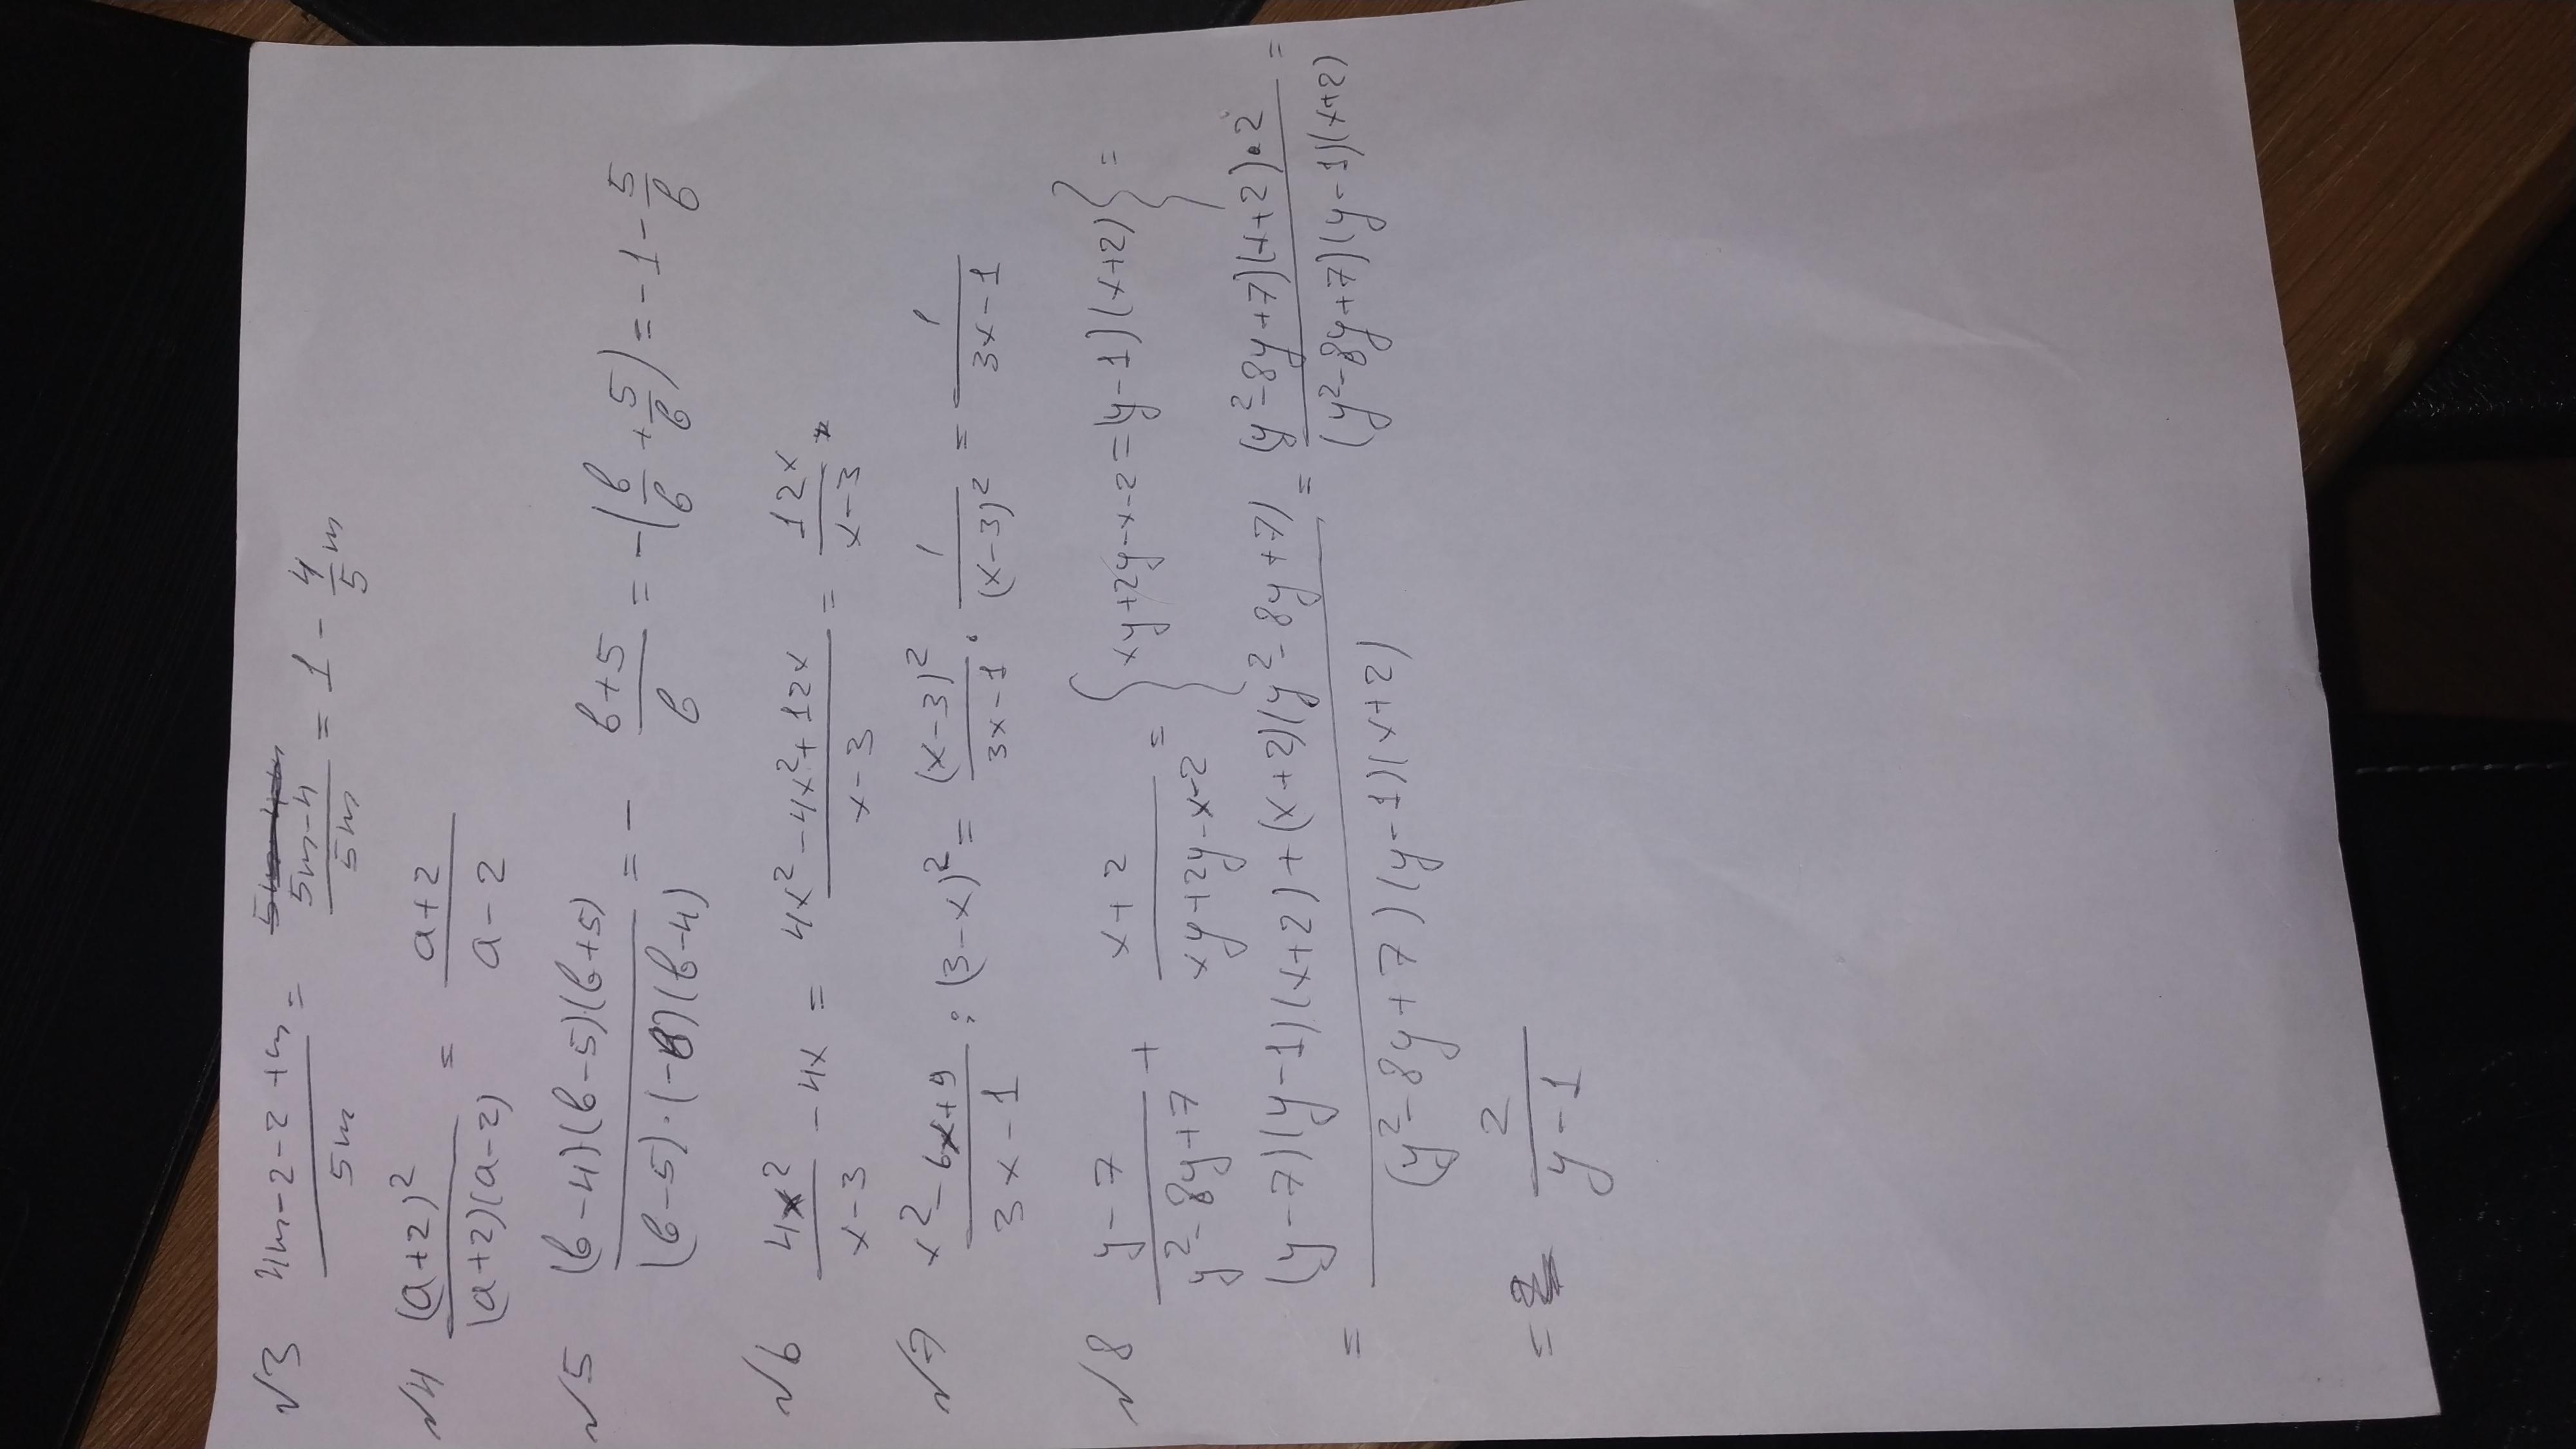 √3 (4m-2-2+m)/(5m) = (5m-4)/(5m) = 1 - 4/5 m
√4 (a+2)²/((a+2)(a-2)) = (a+2)/(a-2)
√5 ((в-4)(в-5)(в+5))/((в-5)·(-в)(в-4)) = - (в+5)/в = -(в/в + 5/в) = -1 - 5/в
√6 4x²/(x-3) - 4x = (4x²-4x²+12x)/(x-3) = 12x/(x-3)
√7 (x²-6x+9)/(3x-1) : (3-x)² = (x-3)²/(3x-1) · 1/(x-3)² = 1/(3x-1)
√8 (y-7)/(y²-8y+7) + (x+2)/(xy+2y-x-2) = {xy+2y-x-2=(y-1)(x+2)} =
= ((y-7)(y-1)(x+2)+(x+2)(y²-8y+7))/((y²-8y+7)(y-1)(x+2)) = ((y²-8y+7)(x+2)·2)/((y²-8y+7)(y-1)(x+2)) =
= 2/(y-1)